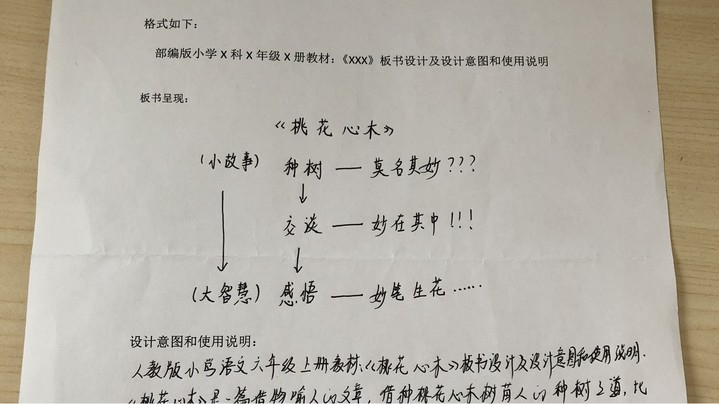 格式如下：
部编版小学X科X年级X册教材：《XXX》板书设计及设计意图和使用说明
板书呈现：
《桃花心木》
（小故事） 种树 — 莫名其妙???
交谈 — 妙在其中!!!
（大智慧） 感悟 — 妙笔生花……
设计意图和使用说明：
人教版小学语文六年级上册教材：《桃花心木》板书设计及设计意图和使用说明.
《桃花心木》是一篇借物喻人的文章，借种桃花心木树苗人的种树之道，比